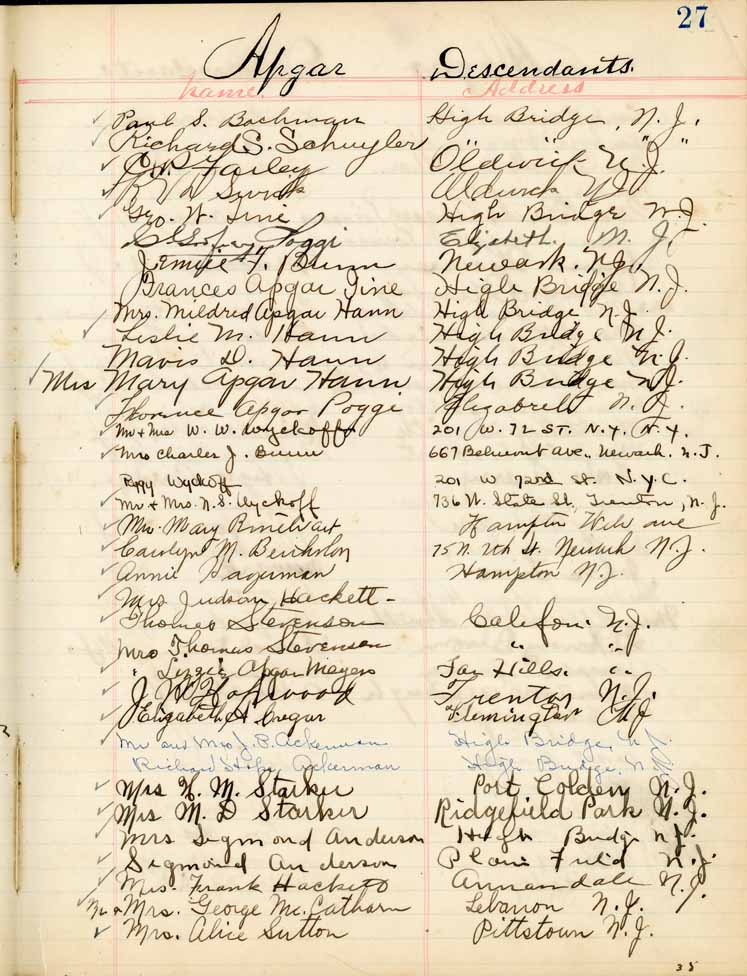 27
Apgar Descendants.
Name Address
Paul S. Bachman High Bridge, N. J.
Richard S. Schuyler " "
C. P. Farley "Oldwick N. J."
Oldwick NJ
Geo. W. Tine High Bridge N. J.
Poggi Elizabeth. N. J.
F. Bunn Newark. N.J.
Frances Apgar Tine High Bridge N. J.
Mrs. Mildred Apgar Hann High Bridge N. J.
Leslie M. Hann High Bridge N. J.
Mavis D. Hann High Bridge N. J.
Mrs Mary Apgar Hann High Bridge N. J.
Florence Apgar Poggi Elizabeth N. J.
Mr & Mrs W. W. Wyckoff 201 W. 72 ST. N.Y. N.Y.
Mrs Charles J. Bunn 667 Belmont Ave., Newark. N. J.
Peggy Wyckoff 201 W 72nd St. N.Y.C.
Mr. & Mrs. N. S. Wyckoff 736 W. State St, Trenton, N. J.
Mrs. Mary Hampton
Carolyn M. 75 N. 7th St. Newark N. J.
Annie Hagerman Hampton N. J.
Mrs Judson Hackett -
Thomas Stevenson Califon N. J.
Mrs Thomas Stevenson " "
" Lizzie Apgar Meyers Far Hills. "
J. W. Hopwood Trenton N. J.
Elizabeth A. Cregar Flemington NJ
Mr and Mrs J. P. Ackerman High Bridge, N. J.
Richard Ackerman High Bridge, N. J.
Mrs M. Starker Port Colden N. J.
Mrs M. D Starker Ridgefield Park N. J.
Mrs Sigmond Anderson High Bridge N. J.
Sigmond Anderson Plain Field N. J.
Mrs. Frank Hackett Annandale N. J.
Mr & Mrs. George Mc. Catharn Lebanon N. J.
Mrs. Alice Sutton Pittstown N. J.
35